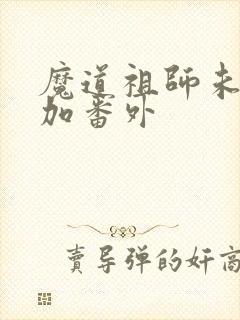 魔道祖師未
加番外
賣导弹的奸商